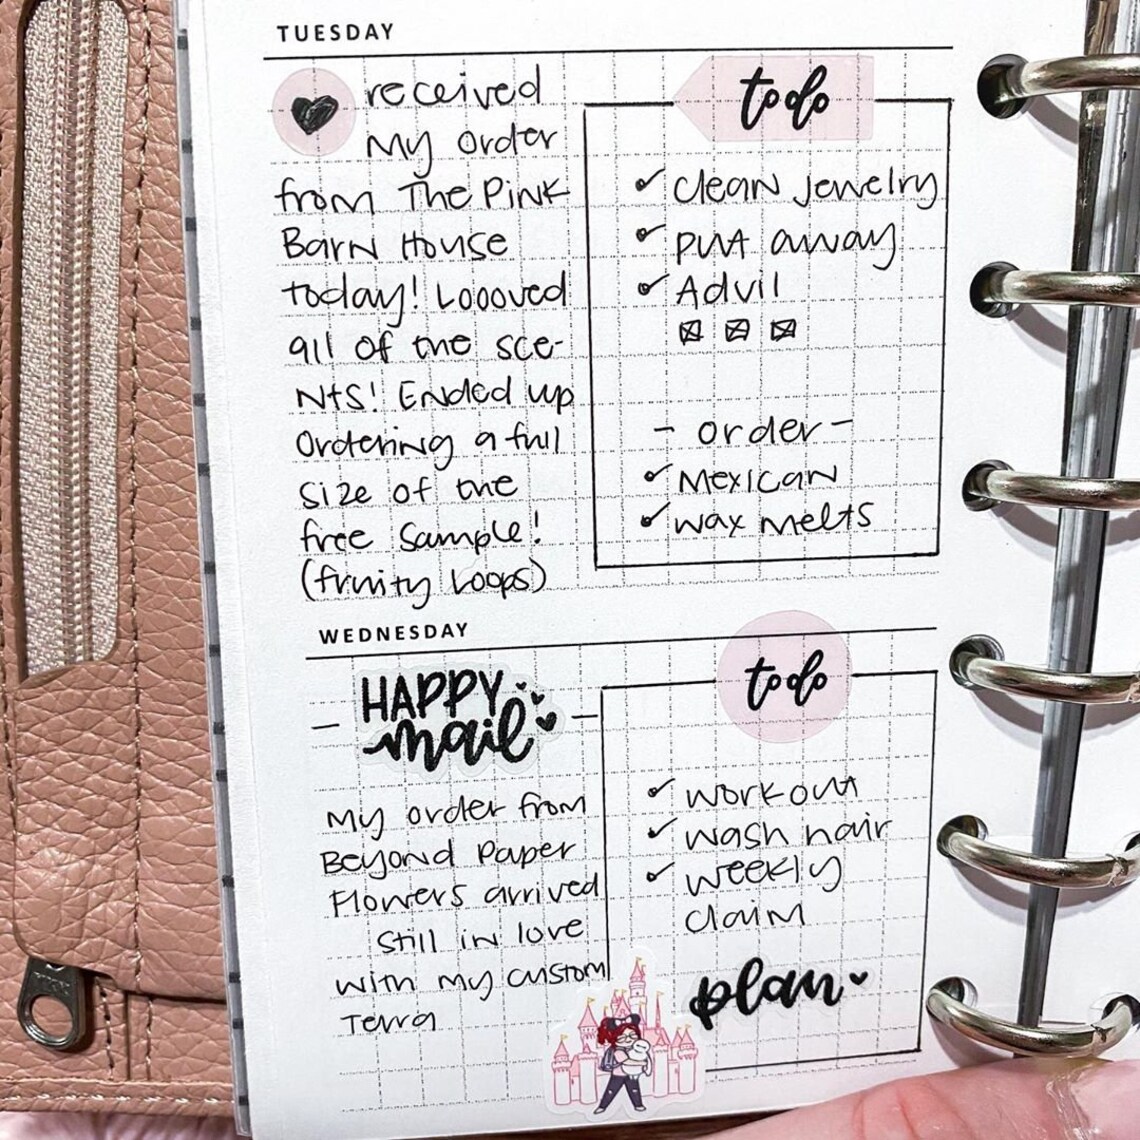 TUESDAY
received
my order
from The Pink
Barn House
today! Loooved
all of the sce-
nts! Ended up
ordering a full
size of the
free sample!
(fruity loops)
to do
clean jewelry
put away
Advil
- order -
Mexican
wax melts
WEDNESDAY
HAPPY
mail
My order from
Beyond Paper
Flowers arrived
Still in love
with my custom
Terra
to do
workout
wash hair
weekly
claim
plan